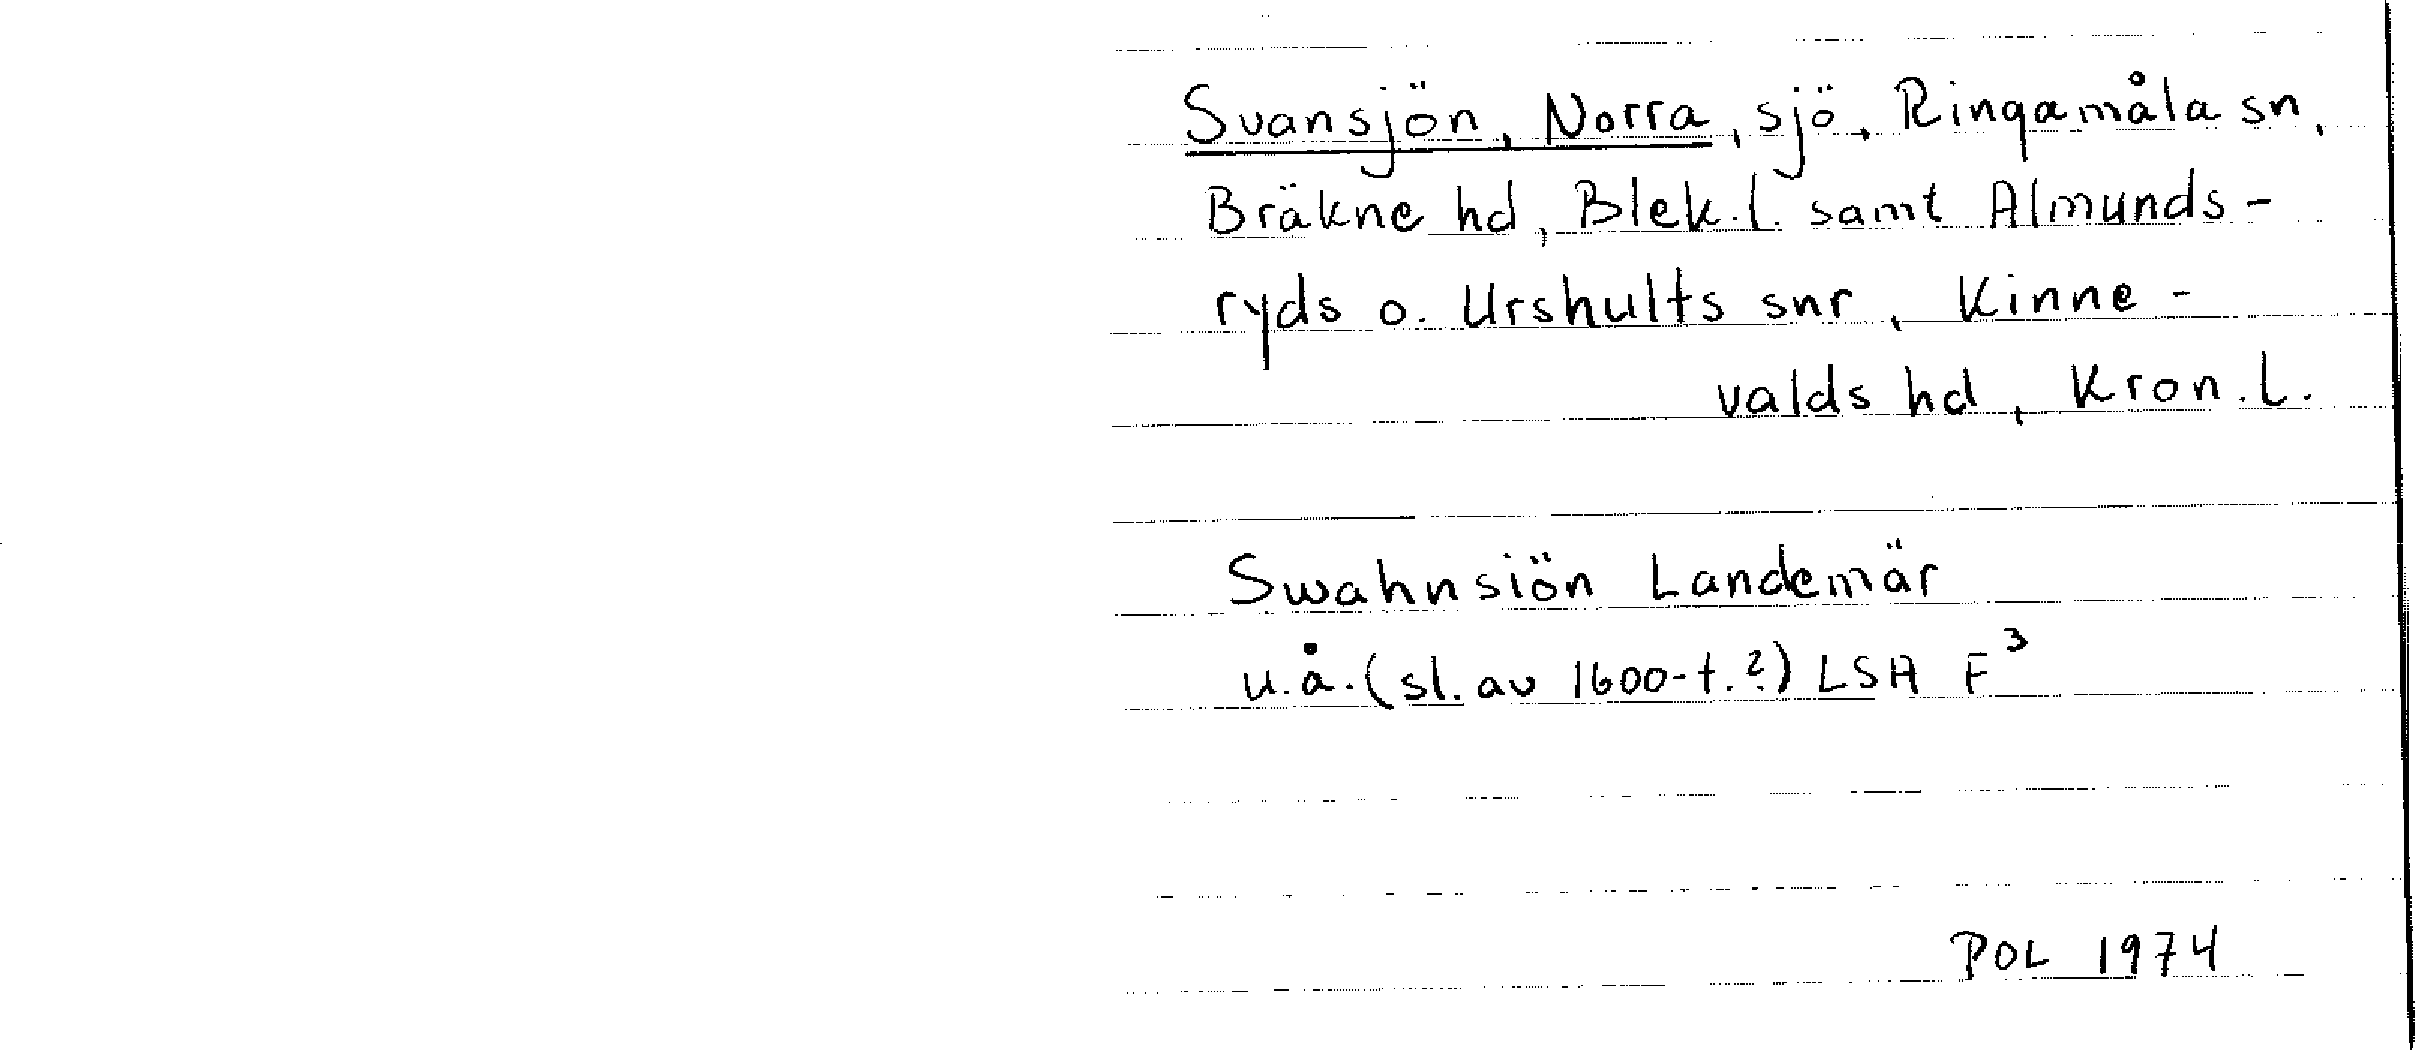 Svansjön, Norra, sjö, Ringamåla sn,
Bräkne hd, Blek.l. samt Almunds-
ryds o. Urshults snr, Kinne-
valds hd, Kron.l.
Swahnsiön Landemär
u.å. (sl. av 1600-t.?) LSA F³
POL 1974